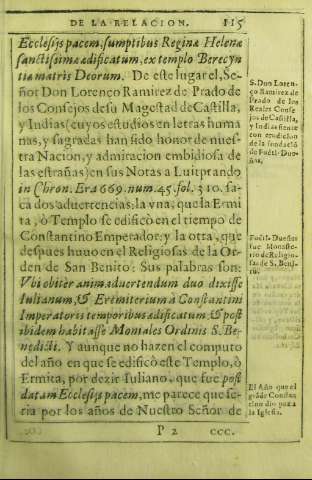 DE LA RELACION. 115
Ecclesijs pacem, sumptibus Reginæ Helenæ
sanctissimæ ædificatum, ex templo Berecyn
tiæ matris Deorum. De este lugar el, Se-
ñor Don Lorenço Ramirez de Prado de
los Consejos de su Magestad de Castilla,
y Indias (cuyos estudios en letras huma
nas, y sagradas han sido honor de nues-
tra Nacion, y admiracion embidiosa de
las estrañas) en sus Notas a Luitprando
in Chron. Era 669. num. 45. fol. 310. sa-
ca dos aduertencias; la vna, que la Ermi
ta, ò Templo se edificò en el tiempo de
Constantino Emperador: y la otra, que
despues huuo en el Religiosas de la Or-
den de San Benito: Sus palabras son:
Vbi obiter animaduertendum duo dixisse
Iulianum, & Eremiterium à Constantini
Imperatoris temporibus ædificatum, & post
ibidem habitasse Moniales Ordinis S. Be-
nedicti. Y aunque no hazen el computo
del año en que se edificò este Templo, ò
Ermita, por dezir Iuliano, que fue post
datam Ecclesijs pacem, me parece que se-
ria por los años de Nuestro Señor de
P 2 CCC.
S. Don Loren-
ço Ramirez de
Prado de los
Reales Conse
jos de Castilla,
y Indias siente
con erudicion
de la fundaciō
de Fuēti-Due-
ñas.
Fuēti-Dueñas
fue Monaste-
rio de Religio-
sas de S. Beni-
to.
El Año que el
grāde Constan
tino dio paz a
la Iglesia.